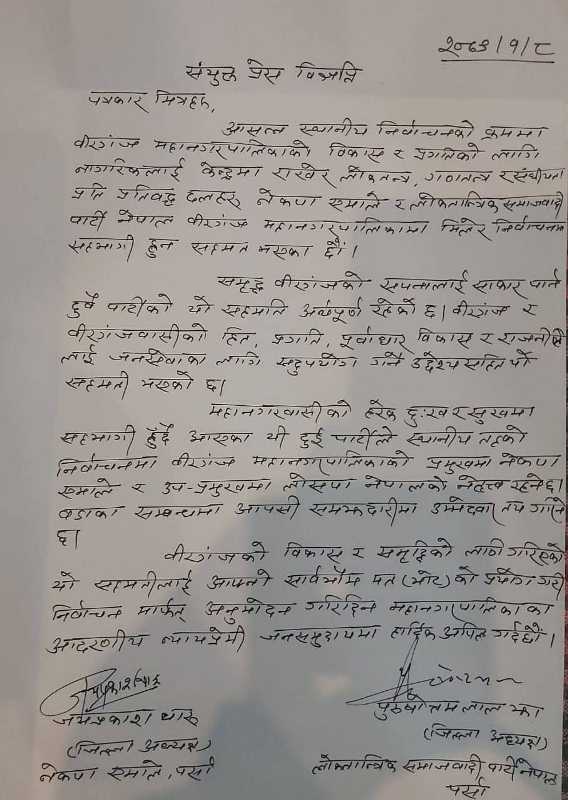 २०७९/१/८
संयुक्त प्रेस विज्ञप्ति
पत्रकार मित्रहरु,
आसन्न स्थानीय निर्वाचनको क्रममा
वीरगंज महानगरपालिकाको विकास र प्रगतिको लागि
नागरिकलाई केन्द्रमा राखेर लोकतन्त्र, गणतन्त्र र संघीयता
प्रति प्रतिवद्ध दलहरु नेकपा एमाले र लोकतान्त्रिक समाजवादी
पार्टी नेपाल वीरगंज महानगरपालिकामा मिलेर निर्वाचनमा
सहभागी हुन सहमत भएका छौं ।
समृद्ध वीरगंजको सपनालाई साकार पार्न
दुवै पार्टीको यो सहमति अर्थपूर्ण रहेको छ। वीरगंज र
वीरगंजवासीको हित, प्रगति, पूर्वाधार विकास र राजनीति
लाई जनसेवाका लागि सदुपयोग गर्ने उद्देश्य सहित यो
सहमती भएको छ।
महानगरवासीको हरेक दुःख र सुखमा
सहभागी हुँदै आएका यी दुई पार्टीले स्थानीय तहको
निर्वाचनमा वीरगंज महानगरपालिकाको प्रमुखमा नेकपा
एमाले र उप-प्रमुखमा लोसपा नेपालको नेतृत्व रहनेछ।
वडाका सम्बन्धमा आपसी समझदारीमा उम्मेदवार तय गरिने
छ।
वीरगंजको विकास र समृद्धिको लागि गरिएको
यो सहमतीलाई आफ्नो सार्वभौम मत (भोट) को प्रयोग गरी
निर्वाचन मार्फत् अनुमोदन गरिदिन महानगरपालिकाका
आदरणीय न्यायप्रेमी जनसमुदायमा हार्दिक अपिल गर्दछौं ।
जयप्रकाश थारु
(जिल्ला अध्यक्ष)
नेकपा एमाले, पर्सा
पुरुषोत्तम लाल झा
(जिल्ला अध्यक्ष)
लोकतान्त्रिक समाजवादी पार्टी नेपाल
पर्सा